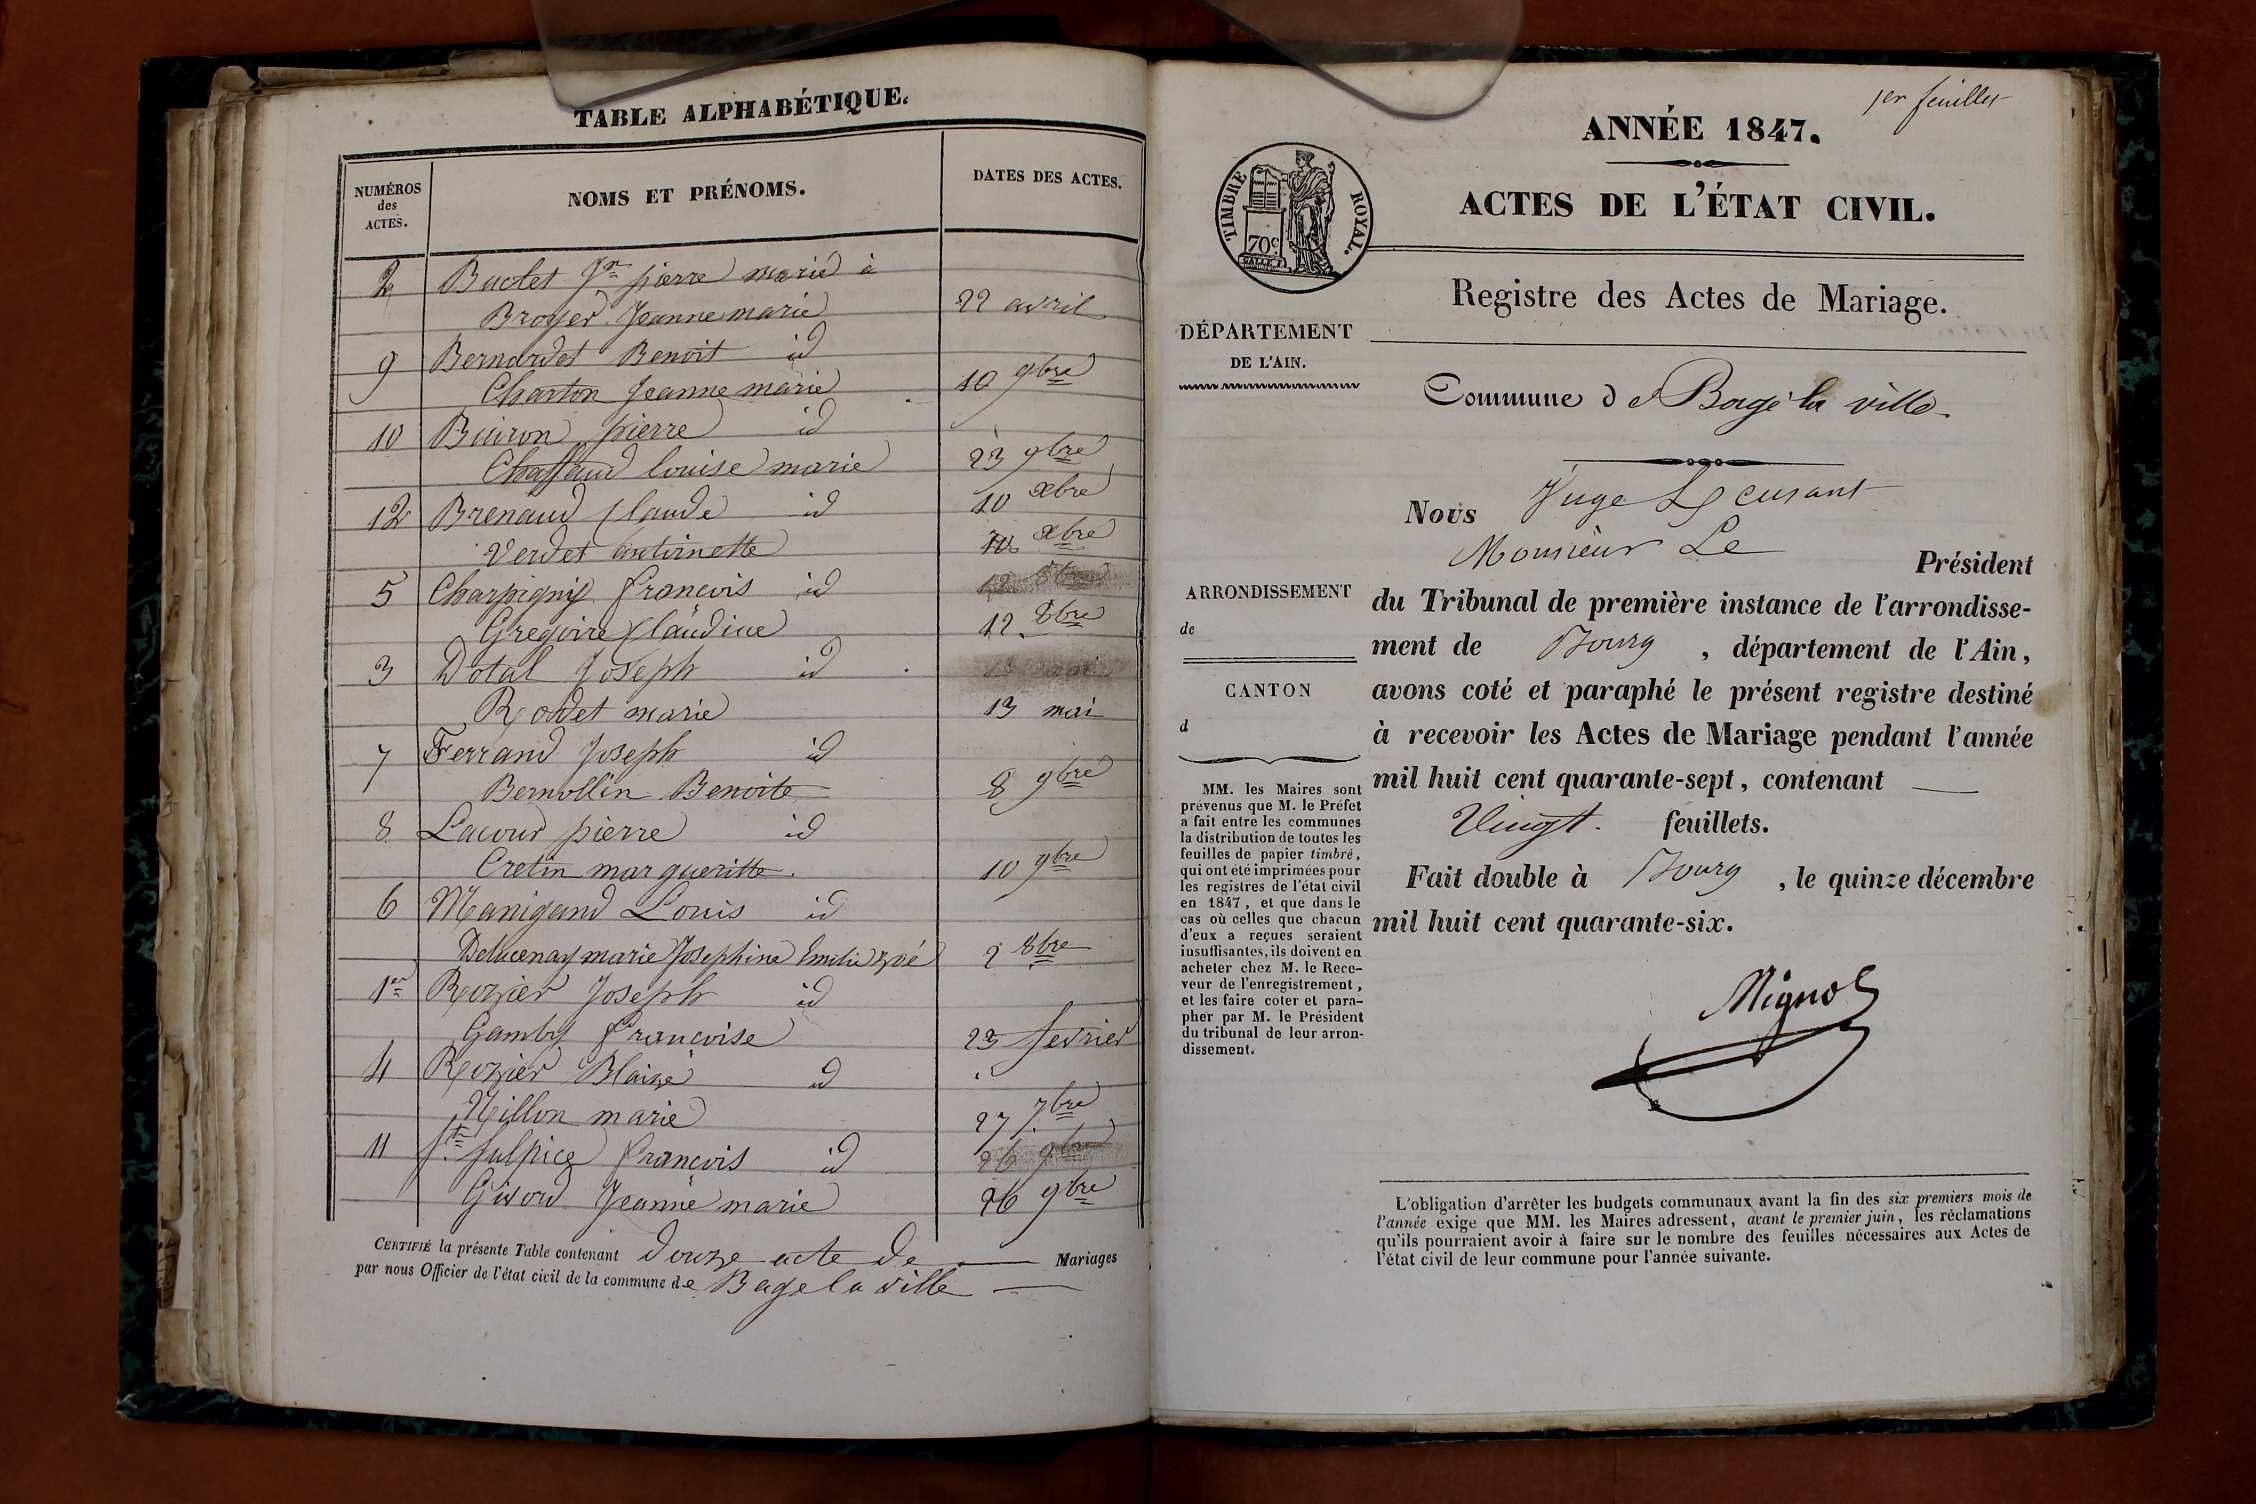 TABLE ALPHABÉTIQUE.
NUMÉROS des ACTES.
NOMS ET PRÉNOMS.
DATES DES ACTES.
2 Buclet Jn pierre marie à
Broyer Jeanne marie 22 avril
9 Bernardet Benoit id
Charton Jeanne marie 10 9bre
10 Buiron pierre id
Chaffaud louise marie 23 9bre
12 Brenaud Claude id 10 xbre
Verdet antoinette 10 xbre
5 Charpigny francois id 12 8bre
Gregoire Claudine 12 8bre
3 Dotal Joseph id 13 mai
Rodet marie 13 mai
7 Ferrand Joseph id
Bernollin Benoite 8 9bre
8 Lacour pierre id
Cretin margueritte 10 9bre
6 Manigand Louis id
Delucenay marie Josephine Emilie zoé 2 8bre
1er Rozier Joseph id
Gamby francoise 23 fevrier
4 Rozier Blaize id
Nillon marie 27 7bre
11 St Sulpice francois id 26 9bre
Givord Jeanne marie 26 9bre
CERTIFIÉ la présente Table contenant douze acte de Mariages
par nous Officier de l'état civil de la commune de Bage la ville
1er feuillet
ANNÉE 1847.
ACTES DE L'ÉTAT CIVIL.
TIMBRE ROYAL.
70c
Registre des Actes de Mariage.
DÉPARTEMENT
DE L'AIN.
Commune de Bagé la ville
Nous Juge
Monsieur Le Président
du Tribunal de première instance de l'arrondisse-
ment de Bourg, département de l'Ain,
avons coté et paraphé le présent registre destiné
à recevoir les Actes de Mariage pendant l'année
mil huit cent quarante-sept, contenant
Vingt feuillets.
Fait double à Bourg, le quinze décembre
mil huit cent quarante-six.
Mignot
ARRONDISSEMENT
de
CANTON
d
MM. les Maires sont
prévenus que M. le Préfet
a fait entre les communes
la distribution de toutes les
feuilles de papier timbré,
qui ont été imprimées pour
les registres de l'état civil
en 1847, et que dans le
cas où celles que chacun
d'eux a reçues seraient
insuffisantes, ils doivent en
acheter chez M. le Rece-
veur de l'enregistrement,
et les faire coter et para-
pher par M. le Président
du tribunal de leur arron-
dissement.
L'obligation d'arrêter les budgets communaux avant la fin des six premiers mois de
l'année exige que MM. les Maires adressent, avant le premier juin, les réclamations
qu'ils pourraient avoir à faire sur le nombre des feuilles nécessaires aux Actes de
l'état civil de leur commune pour l'année suivante.